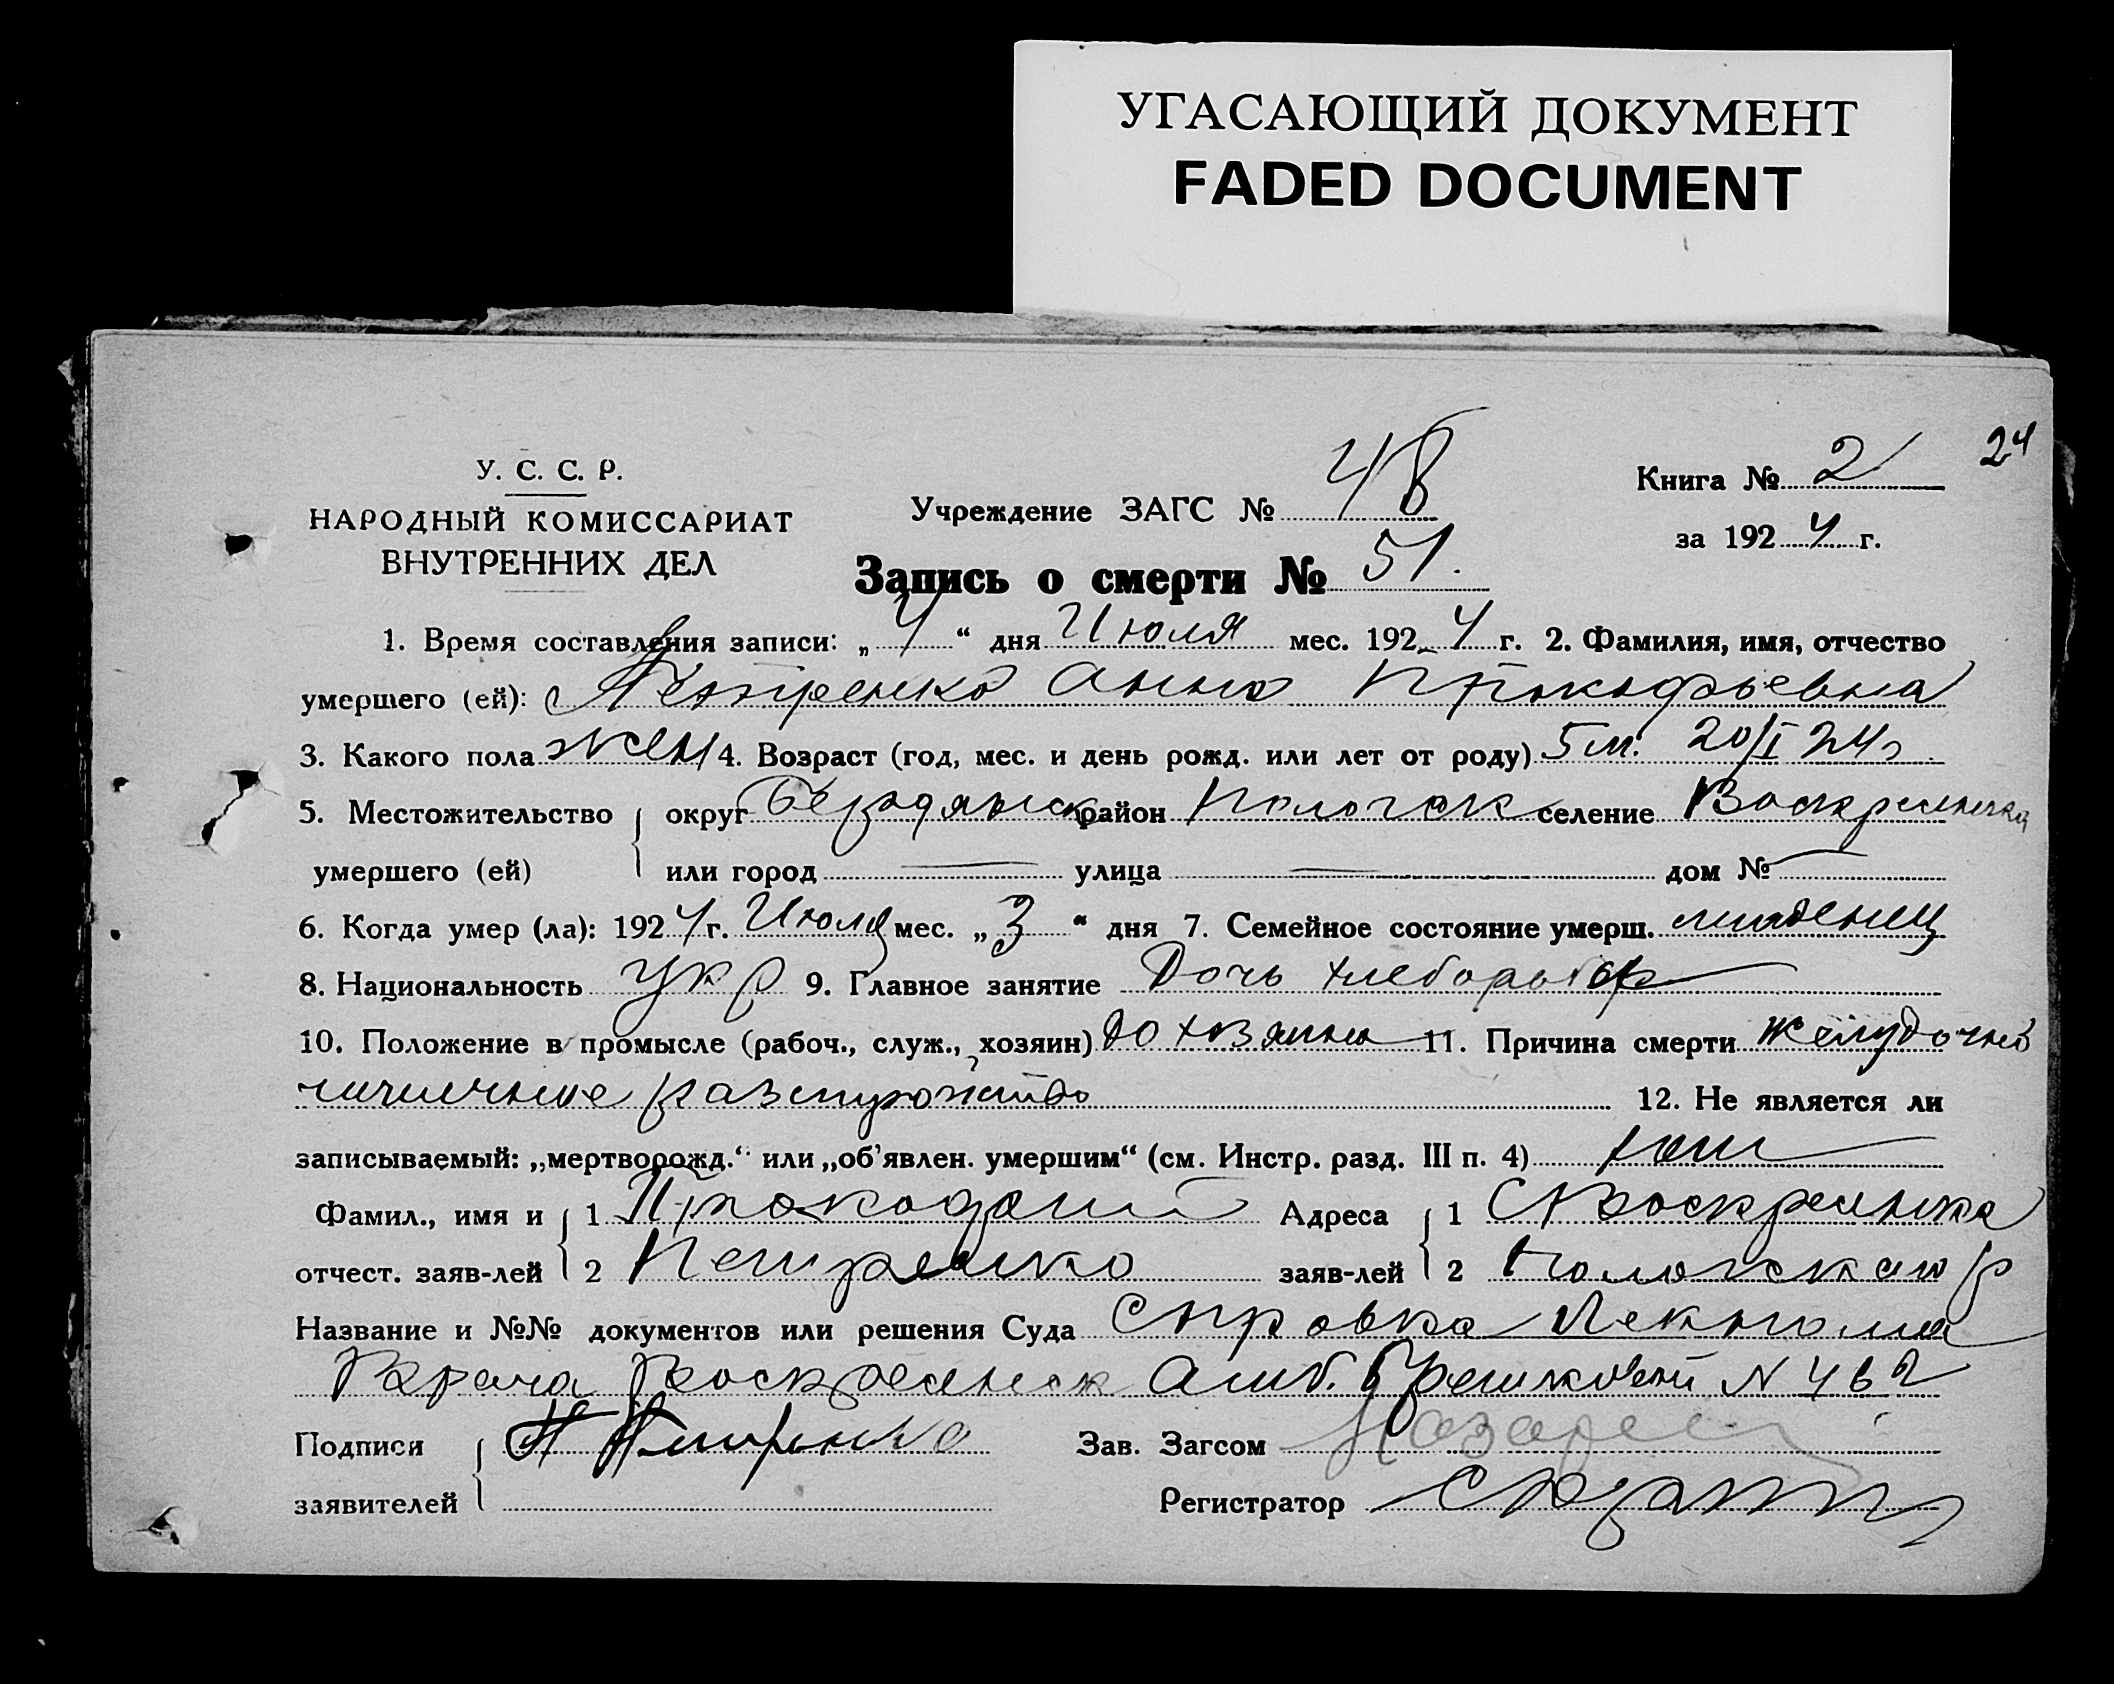 УГАСАЮЩИЙ ДОКУМЕНТ
FADED DOCUMENT
24
У. С. С. Р.
НАРОДНЫЙ КОМИССАРИАТ
ВНУТРЕННИХ ДЕЛ
Учреждение ЗАГС № 48
Книга № 2
за 1924 г.
Запись о смерти № 51.
1. Время составления записи: „4“ дня Июля мес. 1924 г. 2. Фамилия, имя, отчество
умершего (ей): Петренко Анна Прокофьевна
3. Какого пола жен 4. Возраст (год, мес. и день рожд. или лет от роду) 5 м. 20/I 24 г
5. Местожительство умершего (ей) { округ Бердянск район Пологск селение Воскресенка
или город — улица — дом № —
6. Когда умер (ла): 1924 г. Июля мес. „3“ дня 7. Семейное состояние умерш. младенец
8. Национальность укр 9. Главное занятие Дочь хлебороб
10. Положение в промысле (рабоч., служ., хозяин) хозяина 11. Причина смерти желудочно
кишечное расстройство
12. Не является ли
записываемый: „мертворожд.“ или „об'явлен. умершим“ (см. Инстр. разд. III п. 4)
Фамил., имя и отчест. заяв-лей { 1 Адреса заяв-лей { 1 С Воскресенка
2 Петренко 2 Пологского р
Название и №№ документов или решения Суда Справка Лекпома
Врача Воскресенск Амб. N 462
Подписи заявителей { П Петренко Зав. Загсом
Регистратор